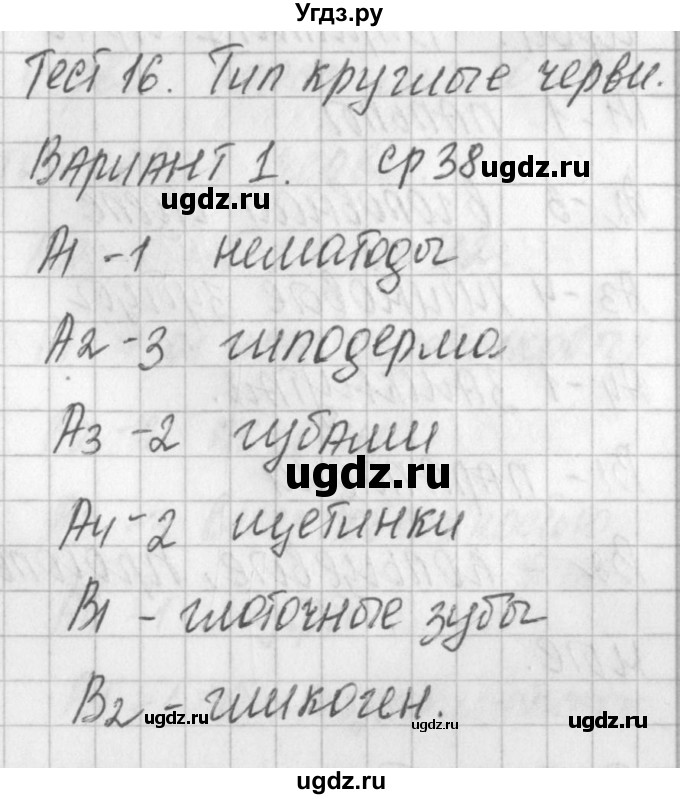 Угдз.ру
Тест 16. Тип круглые черви.
Вариант 1. ср 38
ugdz.ru ugdz.ru
A1 - 1 нематоды
A2 - 3 гиподерма
A3 - 2 губами
ugdz.ru
A4 - 2 щетинки
B1 - глоточные зубы
B2 - гликоген.
ugdz.ru ugdz.ru ugdz.ru
ugdz.ru